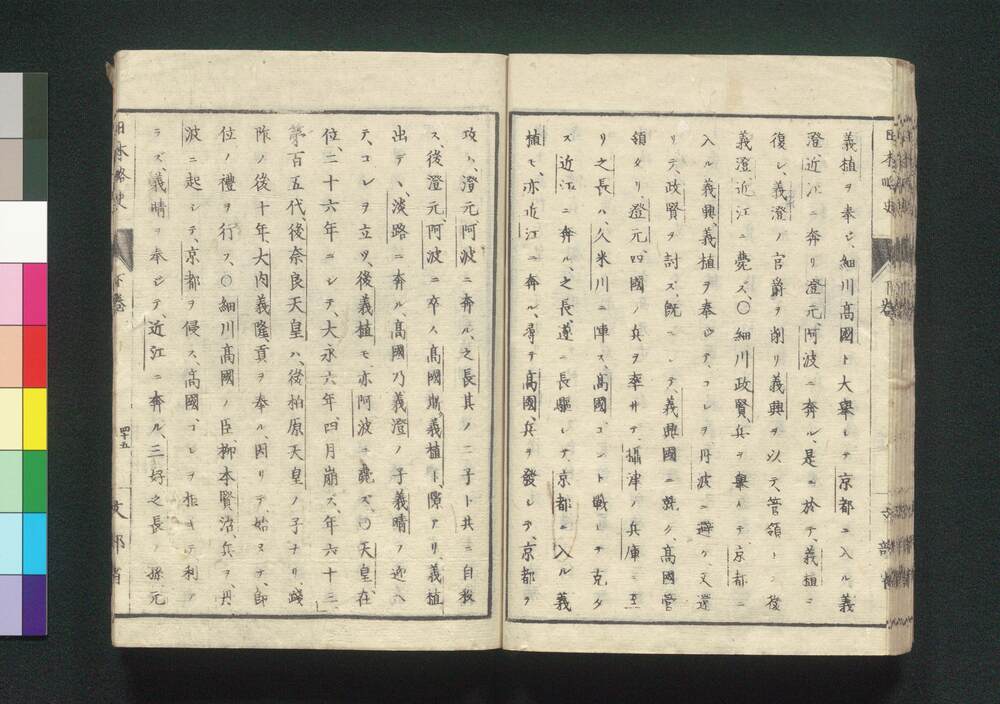 義植ヲ奉ジ、細川高國ト大擧シテ京都ニ入ル義
澄近江ニ奔リ澄元、阿波ニ奔ル、是ニ於テ、義植ニ
復シ、義澄ノ官爵ヲ削リ義興ヲ以テ、管領トス後
義澄近江ニ薨ズ、〇細川政賢、兵ヲ擧ゲテ、京都ニ
入ル義興、義植ヲ奉ジテ、コレヲ丹波ニ避ク、又還
リテ、政賢ヲ討ズ、既ニシテ、義興國ニ就ク、高國管
領タリ澄元、四國ノ兵ヲ率ヰテ、攝津ノ兵庫ニ至
リ之長ハ、久米川ニ陣ス、高國コレト戰ヒテ克タ
ズ近江ニ奔ル、之長、遂ニ長驅シテ、京都ニ入ル義
植モ、亦近江ニ奔ル、尋テ高國、兵ヲ發シテ、京都ヲ
攻ム、澄元、阿波ニ奔ル、之長其ノ二子ト共ニ自殺
ス、後澄元、阿波ニ卒ス高國漸ク義植ト、隙アリ、義植
出デヽ、淡路ニ奔ル、高國乃義澄ノ子義晴ヲ迎ヘ
テ、コレヲ立ツ、後義植モ、亦阿波ニ薨ズ、〇天皇、在
位、二十六年ニシテ、大永六年、四月崩ス、年六十三、
第百五代、後奈良天皇ハ、後柏原天皇ノ子ナリ、踐
祚ノ後十年、大内義隆、貢ヲ奉ル、因リテ、始メテ、即
位ノ禮ヲ行フ、〇細川高國ノ臣、柳本賢治、兵ヲ、丹
波ニ起シテ、京都ヲ侵ス、高國、コレヲ拒ギテ利ア
ラズ、義晴ヲ奉ジテ、近江ニ奔ル、三好之長ノ孫、元
日本略史
下卷
四十五
文部省